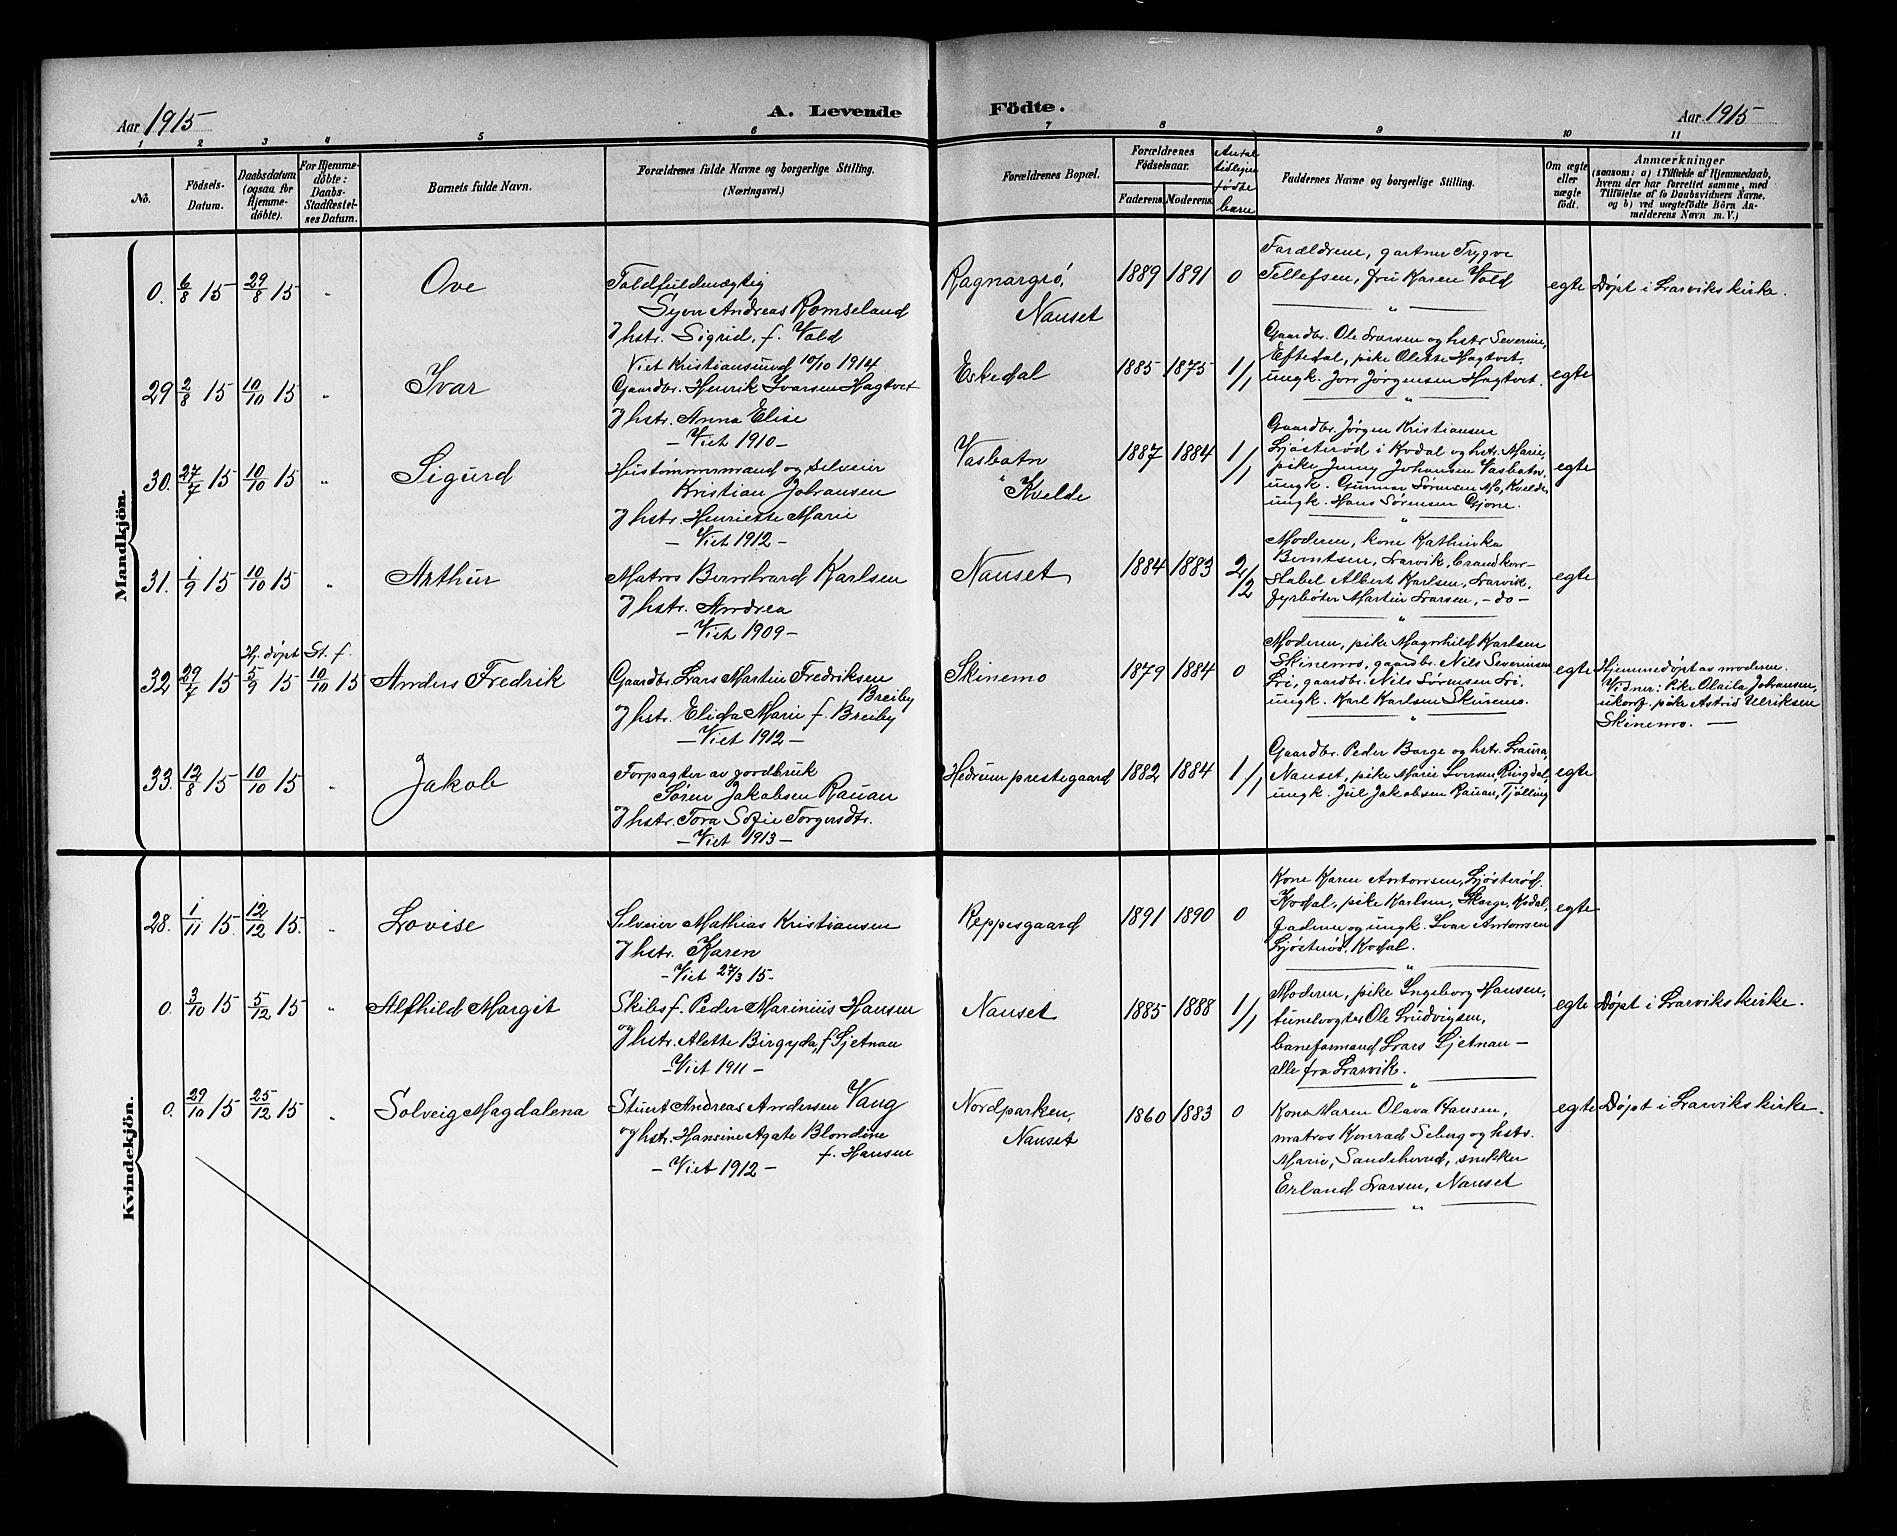 Aar 1915
A. Levende Födte.
Aar 1915
1 2 3 4 5 6 7 8 9 10 11
No.
Födsels-Datum.
Daabsdatum (ogsaa for Hjemme-döbte).
For Hjemme-döbte: Daabs-Stadfæstel-ses Datum.
Barnets fulde Navn.
Forældrenes fulde Navne og borgerlige Stilling.
(Næringsvei.)
Forældrenes Bopæl.
Forældrenes Födselsaar.
Faderens. Moderens.
Antal tidligere fødte barn
Faddernes Navne og borgerlige Stilling.
Om ægte eller uægte födt.
Anmærkninger
(saasom: a) i Tilfælde af Hjemmedaab,
hvem der har forrettet samme, med
Tilföielse af to Daabsvidners Navne,
og b) ved uægtefödte Börn An-
melderens Navn m. V.)
Mandkjön.
0. 6/8 15 29/8 15 " Ove
Toldfuldmægtig
Syvn Andreas Romseland
& hstr. Sigrid, f. Vold
Viet Kristiansund 10/10 1914
Ragnargrø,
Nauset
1889 1891 0
Forældrene, gartner Trygve
Tellefsen, fru Karen Vold
egte Døpt i Larviks kirke.
29 2/8 15 10/10 15 " Ivar
Gaardbr. Henrik Ivarsen Hagtvet
& hstr. Anna Elise
- Viet 1910 -
Eskedal
1885 1875 1/1
Gaardbr. Ole Larsen og hstr Severine,
Eftedal, pike Olette Hagtvet,
ungk. Jørgensen Hagtvet.
egte
30. 27/7 15 10/10 15 " Sigurd
Hustømmermand og selveier
Kristian Johansen
& hstr. Henriette Marie
- Viet 1912 -
Vasbotn
Kvelde
1887 1884 1/1
Gaardbr. Jørgen Kristiansen
Ljøsterød i Kodal og hstr. Marie,
pike Jenny Johansen Vasbotn,
ungk. Gunnar Sørensen Mo, Kvelde,
ungk. Hans Sørensen Gjone.
egte
31. 1/9 15 10/10 15 " Arthur
Matros Bernhard Karlsen
& hstr. Andrea
- Viet 1909 -
Nauset
1884 1883 2/2
Moderen, kone Kathinka
Berntsen, Larvik, brandkon-
stabel Albert Karlsen, Larvik,
fyrbøter Martin Larsen, - do -
egte
32 29/7 15 Hj. døpt 5/9 15 St. f. 10/10 15 Anders Fredrik
Gaardbr. Lars Martin Fredriksen
Breiby
& hstr. Elida Marie f. Breiby
- Viet 1912 -
Skinemo
1879 1884 0
Moderen, pike Magnhild Karlsen
Skinemo, gaardbr. Nils Severinsen
Li, gaardbr. Nils Sørensen Li,
ungk. Karl Karlsen Skinemo.
egte
Hjemmedøpt av moderen.
Vidner: Pike Olaila Johansen,
ukonf. pike Astrid Ulriksen
Skinemo.
33. 12/8 15 10/10 15 " Jakob
Forpagter av jordbruk
Søren Jakobsen Rauan
& hstr. Tora Sofie Torgersdtr.
- Viet 1913 -
Hedrum prestegaard
1882 1884 1/1
Gaardbr. Peder Borge og hstr. Laura,
Nauset, pike Marie Iversen, Ringdal,
ungk. Juel Jakobsen Rauan, Tjølling
egte
Kvindekjön.
28. 1/11 15. 12/12 15. " Lovise
Selveier Mathias Kristiansen
& hstr. Karen
- Viet 27/3 15 -
Reppesgaard
1891 1890 0
Kone Karen Antonsen, Ljøsterød,
Kodal, pike Karlsen, Skorge, Kodal,
faderen og ungk. Ivar Antonsen
Ljøsterød, Kodal.
egte
0. 3/10 15 5/12 15 " Alfhild Margit
Skibsf. Peder Marinius Hansen
og hstr. Alette Birgyda, f. Sjetnan
- Viet 1911 -
Nauset
1885 1888 1/1
Moderen, pike Ingeborg Hansen,
tunelvogter Ole Ludvigsen,
baneformand Lars Sjetnan -
alle fra Larvik.
egte Døpt i Larviks kirke.
0. 29/10 15 25/12 15 " Solveig Magdalena
Stuert Andreas Andersen Vang
og hstr. Hansine Agate Blondine
f. Hansen
- Viet 1912 -
Nordparken,
Nauset
1860 1883 0
Kone Maren Olava Hansen,
matros Konrad Seberg og hstr.
Marie, Sandeherred, snekker
Erland Larsen, Nauset
egte Døpt i Larviks kirke.